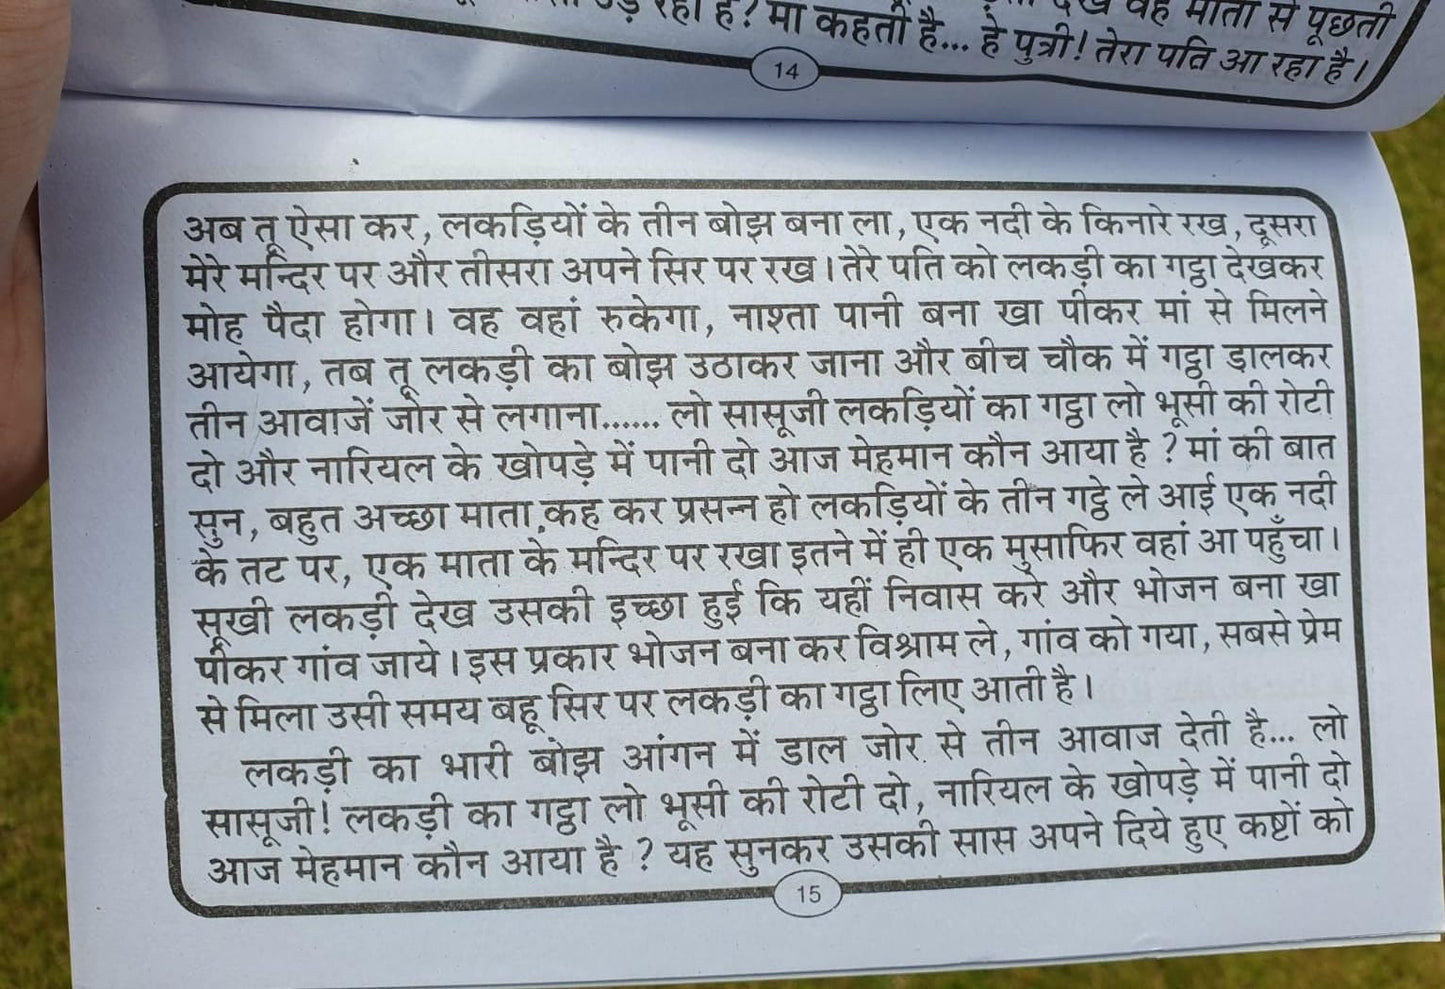 रहा है? मां कहती है... हे पुत्री! तेरा पति आ रहा है।
वह माता से पूछती
14
अब तू ऐसा कर, लकड़ियों के तीन बोझ बना ला, एक नदी के किनारे रख, दूसरा
मेरे मन्दिर पर और तीसरा अपने सिर पर रख। तेरे पति को लकड़ी का गट्ठा देखकर
मोह पैदा होगा। वह वहां रुकेगा, नाश्ता पानी बना खा पीकर मां से मिलने
आयेगा, तब तू लकड़ी का बोझ उठाकर जाना और बीच चौक में गट्ठा डालकर
तीन आवाजें जोर से लगाना...... लो सासूजी लकड़ियों का गट्ठा लो भूसी की रोटी
दो और नारियल के खोपड़े में पानी दो आज मेहमान कौन आया है ? मां की बात
सुन, बहुत अच्छा माता कह कर प्रसन्न हो लकड़ियों के तीन गट्ठे ले आई एक नदी
के तट पर, एक माता के मन्दिर पर रखा इतने में ही एक मुसाफिर वहां आ पहुँचा।
सूखी लकड़ी देख उसकी इच्छा हुई कि यहीं निवास करे और भोजन बना खा
पीकर गांव जाये। इस प्रकार भोजन बना कर विश्राम ले, गांव को गया, सबसे प्रेम
से मिला उसी समय बहू सिर पर लकड़ी का गट्ठा लिए आती है।
लकड़ी का भारी बोझ आंगन में डाल जोर से तीन आवाज देती है... लो
सासूजी! लकड़ी का गट्ठा लो भूसी की रोटी दो, नारियल के खोपड़े में पानी दो
आज मेहमान कौन आया है ? यह सुनकर उसकी सास अपने दिये हुए कष्टों को
15